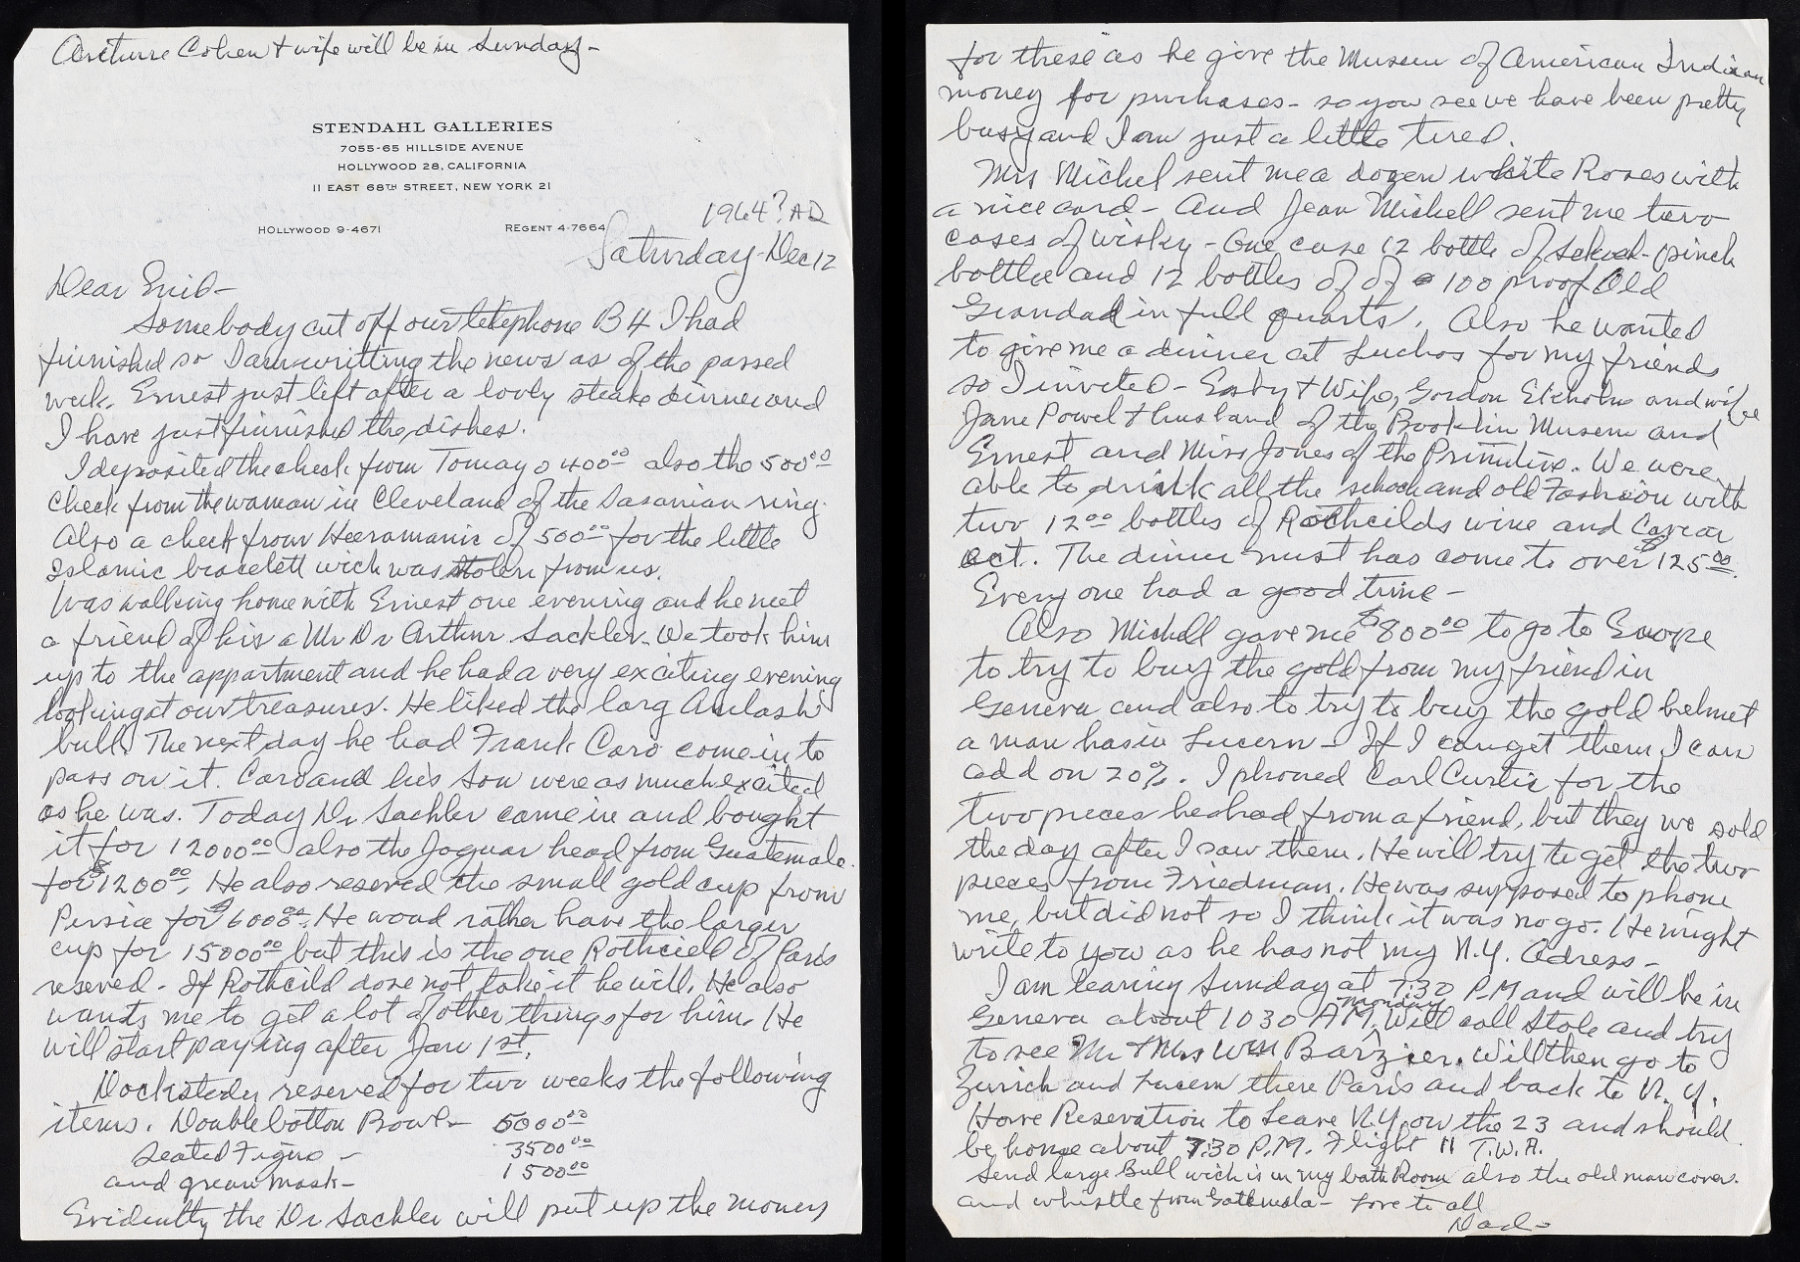 Arcturre Cohen + wife will be in Sunday -
STENDAHL GALLERIES
7055-65 HILLSIDE AVENUE
HOLLYWOOD 28, CALIFORNIA
11 EAST 68TH STREET, NEW YORK 21
1964? AD
HOLLYWOOD 9-4671 REGENT 4-7664
Saturday - Dec 12
Dear Enid -
Somebody cut off our telephone B4 I had
finnished so I am writting the news as of the passed
week. Ernest just left after a lovly steake dinner and
I have just finnished the dishes.
I deposited the check from Tomayo 400.00 also the 500.00
check from the woman in Cleveland of the Sasanian ring.
Also a check from Heeramanic of 500.00 for the little
Islamic bracelett wich was stolen from us.
Was walking home with Ernest one evening and he met
a friend of his a Mr Dr Arthur Sackler. We took him
up to the appartment and he had a very exciting evening
looking at our treasures. He liked the larg Amlash
bull. The next day he had Frank Caro come in to
pass on it. Caro and his son were as much excited
as he was. Today Dr Sackler came in and bought
it for 12000.00 also the Joguar head from Guatemala
for $1200.00. He also reserved the small gold cup from
Persia for $6000.00. He woud rather have the larger
cup for 15000.00 but this is the one Rothcield of Paris
reserved. If Rothcild dose not take it he will. He also
wants me to get a lot of other things for him. He
will start paying after Jan 1st.
Dockstedr reserved for two weeks the following
items. Double botton Bowl - 5000.00
Seated Figure - 3500.00
and green mask - 1500.00
Evidently the Dr Sackler will put up the money
for these as he give the Museum of American Indian
money for purchases - so you see we have been pretty
busy and I am just a little tired.
Mrs Michel sent me a dozen white Roses with
a nice card - And Jean Michell sent me two
cases of wisky - One case 12 bottle of pinch
bottle and 12 bottles of of 100 proof Old
Grandad in full quarts. Also he wanted
to give me a dinner at Luchos for my friends
so I invited - Easby + Wife, Gordon Ekholm and wife
Jane Powel + husband of the Booklin Museum and
Ernest and Miss Jones of the Primitive. We were
able to drink all the schoch and old Fashion with
two 12.00 bottles of Rothceilds wine and Caviar
ect. The dinner must has come to over $125.00.
Every one had a good time -
Also Michell gave me $800.00 to go to Euorpe
to try to buy the gold from my friend in
Geneva and also to try to buy the gold helmet
a man has in Lucern - If I can get them I can
add on 20%. I phoned Carl Curtis for the
two pieces he had from a friend, but they wo sold
the day after I saw them. He will try to get the two
pieces from Friedman. He was supposed to phone
me, but did not so I think it was no go. He might
write to you as he has not my N.Y. Adress -
I am leaving Sunday at 7:30 P.M and will be in
Geneva about 10 30 AM, monday Will call Stole and try
to see Mr + Mrs Wm Barzier. Will then go to
Zurich and Lucern then Paris and back to N.Y.
Have Reservation to Leave N.Y. on the 23 and should
be home about 7:30 P.M. Flight 11 T.W.A.
Send large Bull wich is in my bath Room also the old man cover
and whistle from Gatemala - Love to all
Dad -